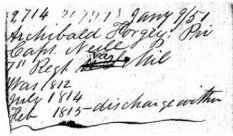 2714 Jany 9/51
Archibald Forgey, Pri
Capt. Neill
7" Regt Mil
War 1812
July 1814
Feb 1815 - discharge within